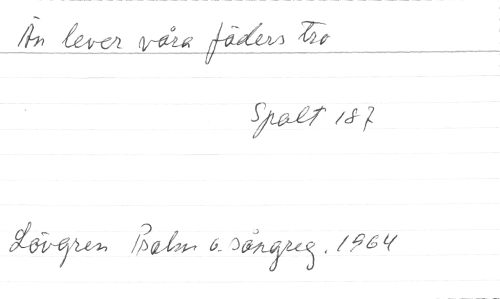 Än lever våra fäders tro
Spalt 187
Lövgren Psalm o. sångreg. 1964